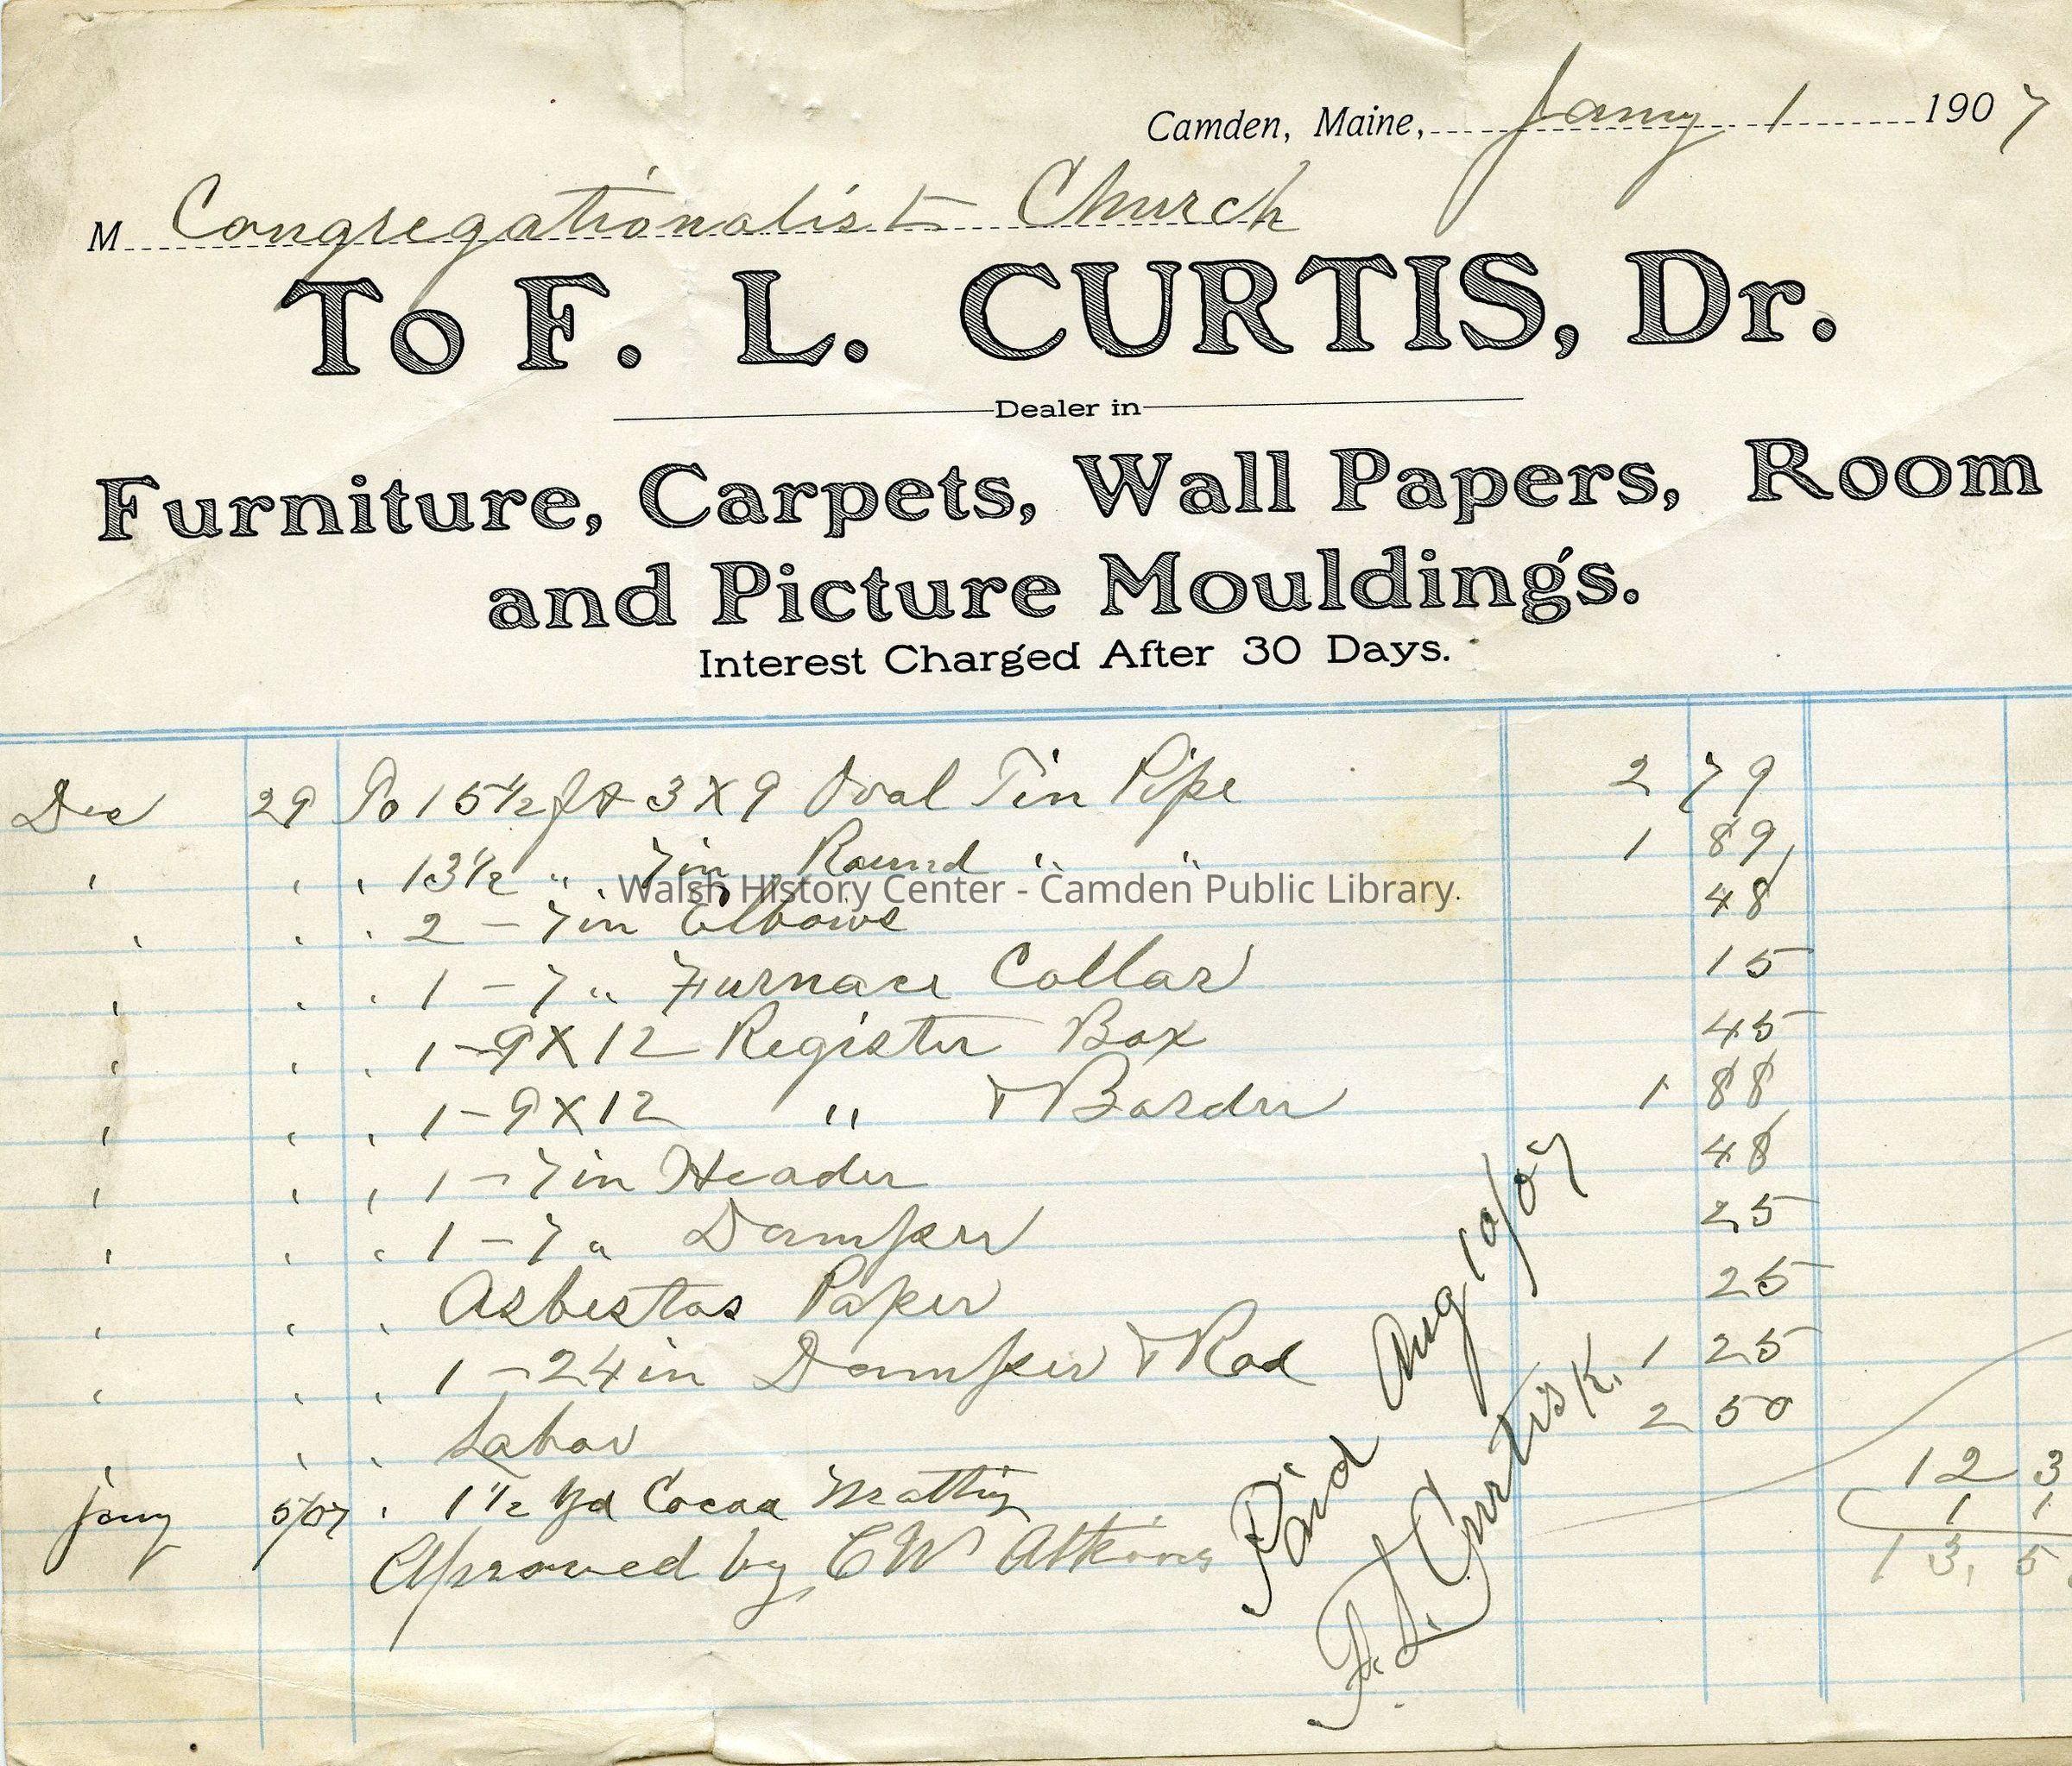 Camden, Maine, Jany 1 1907
M Congregationalist Church
To F. L. CURTIS, Dr.
Dealer in
Furniture, Carpets, Wall Papers, Room
and Picture Mouldings.
Interest Charged After 30 Days.
Dec 29 To 15½ ft 3 X 9 Oval Tin Pipe 2 79
" " " 13½ " 7 in Round " " 1 89
Walsh History Center - Camden Public Library.
" " " 2 - 7 in Elbows 48
" " " 1 - 7 " Furnace Collar 15
" " " 1 - 9 X 12 Register Box 45
" " " 1 - 9 X 12 " & Border 1 88
" " " 1 - 7 in Header 48
" " " 1 - 7 " Damper 25
" " " Asbestos Paper 25
" " " 1 - 24 in Damper & Rod 1 25
" " " Labor 2 50
12 3
Jany 5/07 " 1½ Yd Cocoa Matting 1 1
Aproved by C W Atkins 13, 5
Paid Aug 10/07
F. L. Curtis K.